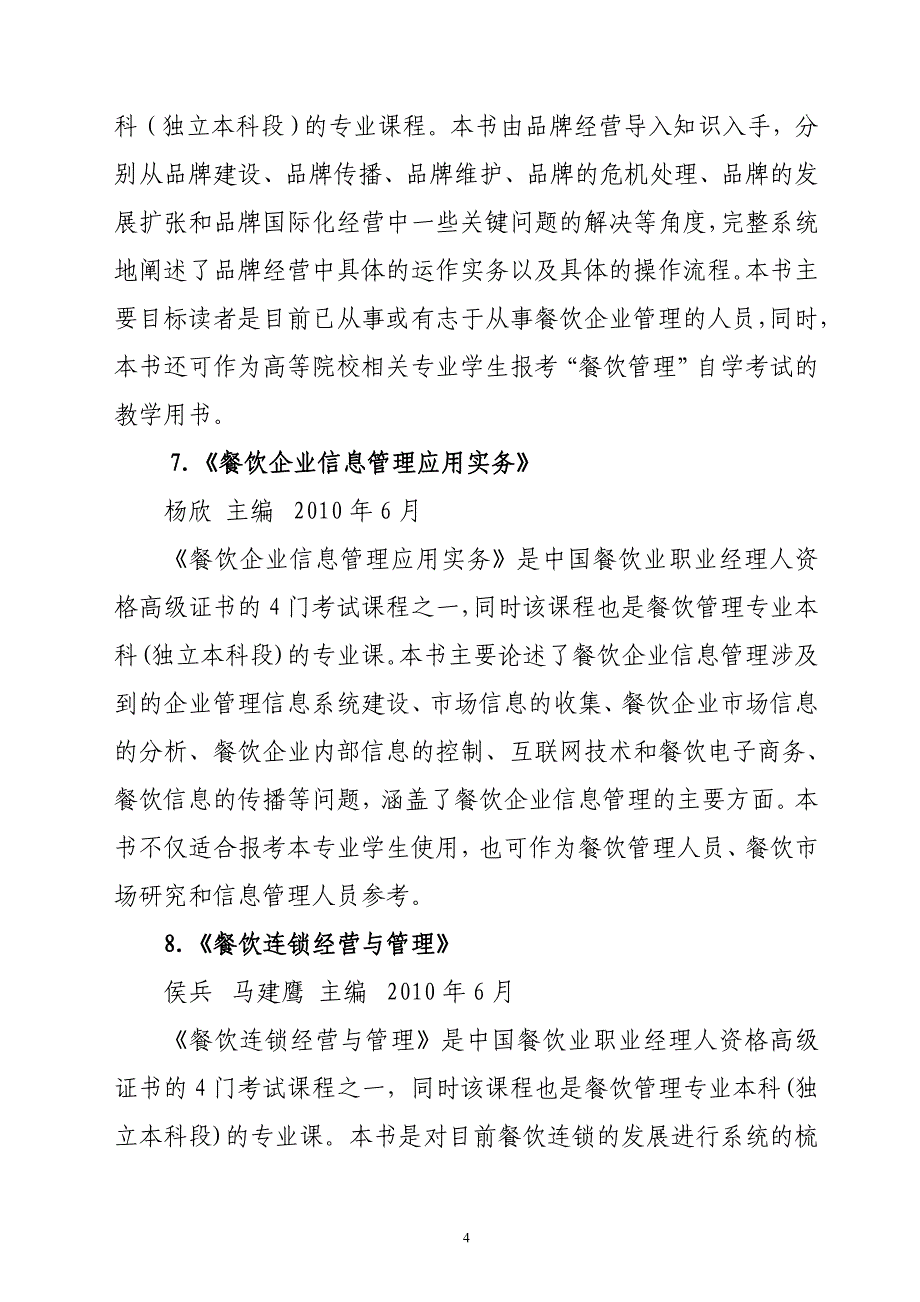 科（独立本科段）的专业课程。本书由品牌经营导入知识入手，分
别从品牌建设、品牌传播、品牌维护、品牌的危机处理、品牌的发
展扩张和品牌国际化经营中一些关键问题的解决等角度，完整系统
地阐述了品牌经营中具体的运作实务以及具体的操作流程。本书主
要目标读者是目前已从事或有志于从事餐饮企业管理的人员，同时，
本书还可作为高等院校相关专业学生报考“餐饮管理”自学考试的
教学用书。
7.《餐饮企业信息管理应用实务》
杨欣 主编 2010年6月
《餐饮企业信息管理应用实务》是中国餐饮业职业经理人资
格高级证书的4门考试课程之一，同时该课程也是餐饮管理专业本
科(独立本科段)的专业课。本书主要论述了餐饮企业信息管理涉及
到的企业管理信息系统建设、市场信息的收集、餐饮企业市场信息
的分析、餐饮企业内部信息的控制、互联网技术和餐饮电子商务、
餐饮信息的传播等问题，涵盖了餐饮企业信息管理的主要方面。本
书不仅适合报考本专业学生使用，也可作为餐饮管理人员、餐饮市
场研究和信息管理人员参考。
8.《餐饮连锁经营与管理》
侯兵 马建鹰 主编 2010年6月
《餐饮连锁经营与管理》是中国餐饮业职业经理人资格高级
证书的4门考试课程之一，同时该课程也是餐饮管理专业本科(独
立本科段)的专业课。本书是对目前餐饮连锁的发展进行系统的梳
4